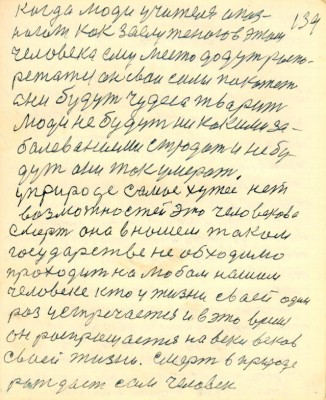 когда люди учителя опоз- 134
нают как заслуженого в этом
человека ему место дадут распо-
ретатся он свои сили покажет
они будут чудеса тварит
люди не будут никакими за-
балеваниеми страдат и не бу
дут они так умерат.
у природе самое хужее нет
возможностей это человекова
смерт она в нашем таком
государстве необходимо
проходит на любом нашем
человеке кто у жизни своей один
раз устречается и в это время
он роспрощается на веки веков
своей жизни. смерт в природе
рождает сам человек